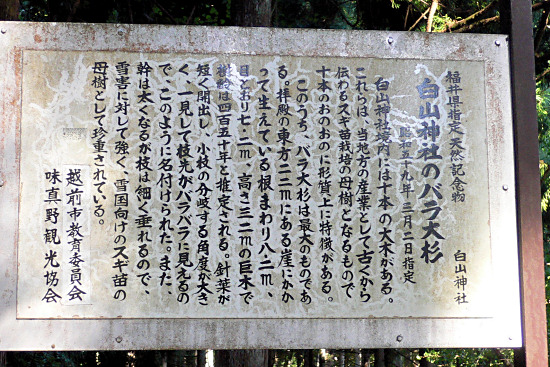 福井県指定 天然記念物
白山神社のバラ大杉
昭和五十九年 三月二日指定
白山神社
白山神社境内には十本の大木がある。
これらは、当地方の産業として古くから
伝わるスギ苗栽培の母樹となるもので
十本のおのおのに形質上に特徴がある。
このうち、バラ大杉は最大のものであ
る。拝殿の東方二二mにある崖にかか
って生えている根まわり八・二m、
目どおり七・二m、高さ三二mの巨木で
樹齢は四百五十年と推定される。針葉が
短く開出し、小枝の分岐する角度が大き
く、一見して枝先がバラバラに見えるの
で、このように名付けられた。また、
幹は太くなるが枝は細く垂れるので、
雪害に対して強く、雪国向けのスギ苗の
母樹として珍重されている。
越前市教育委員会
味真野観光協会